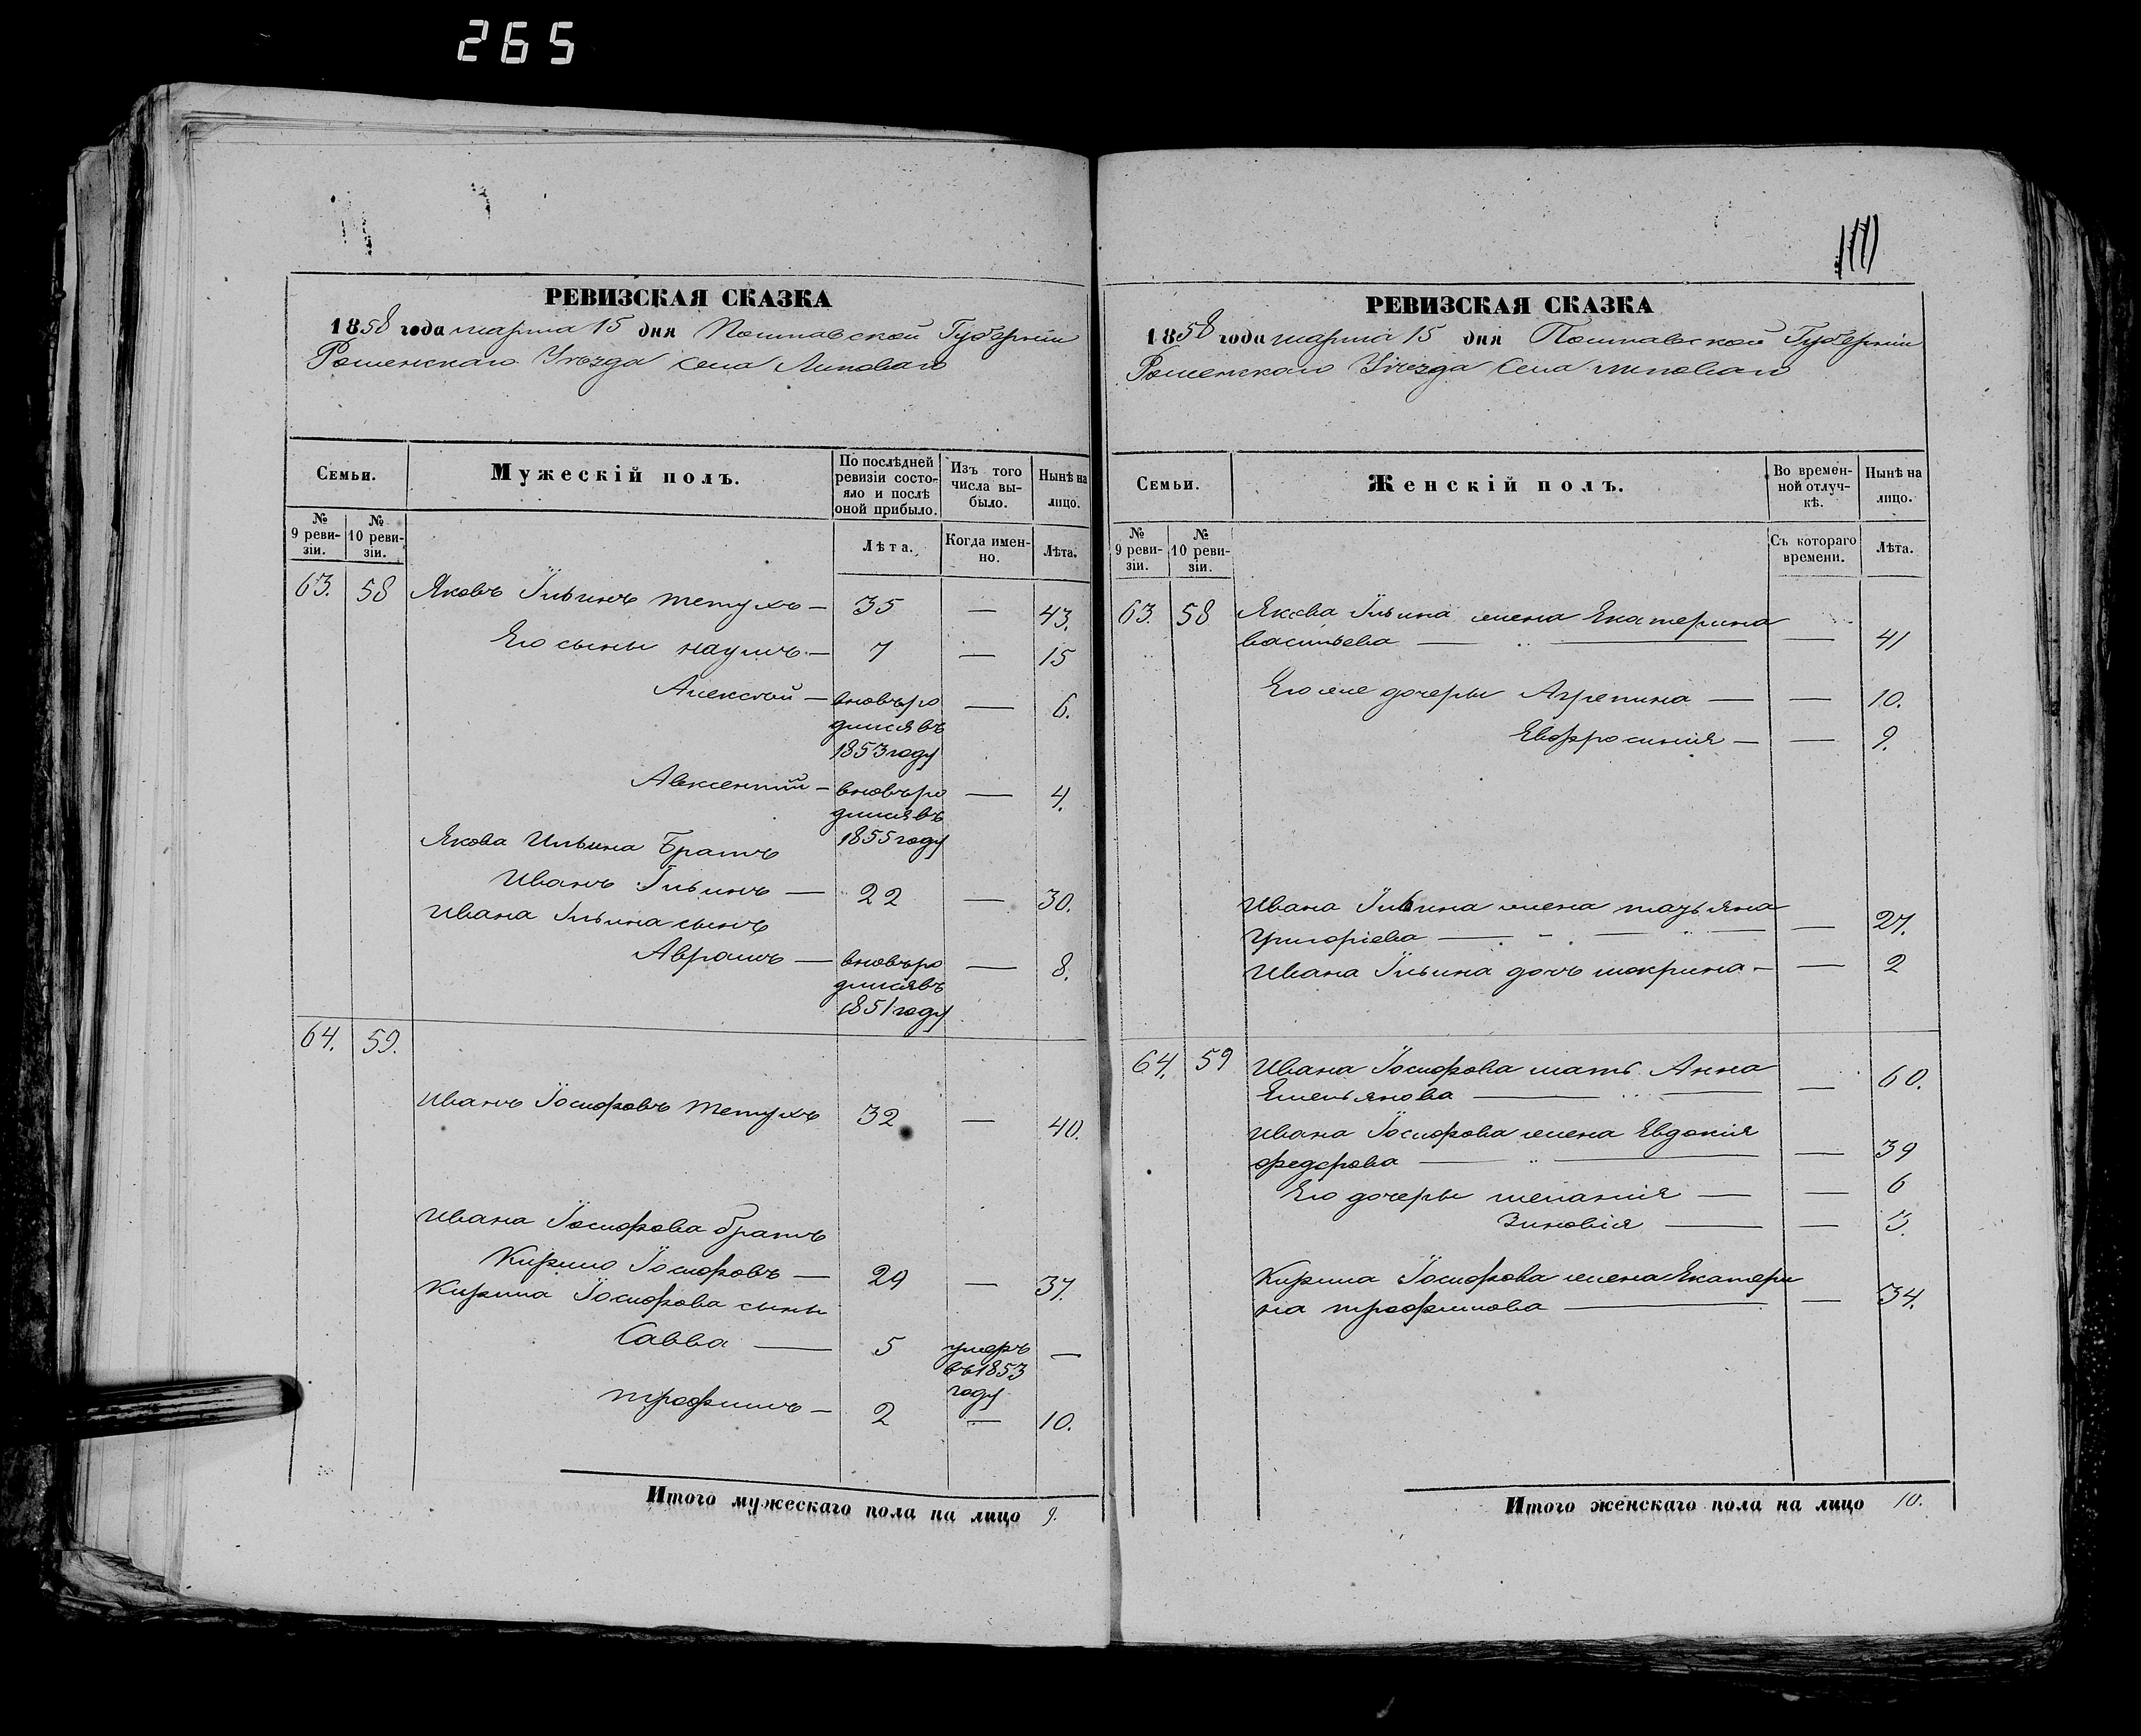 265
РЕВИЗСКАЯ СКАЗКА
1858 года марта 15 дня Полтавской Губерніи
Роменскаго Уѣзда села Липоваго
Семьи.
Мужескій полъ.
По послѣдней ревизіи состояло и послѣ оной прибыло.
Изъ того числа выбыло.
Нынѣ на лицо.
№ 9 ревизіи.
№ 10 ревизіи.
Лѣта.
Когда именно.
Лѣта.
63. 58 Яковъ Ильинъ Тетухъ — 35 — 43.
Его сыны Наумъ — 7 — 15
Алексѣй — вновь ро — 6.
дился въ
1853 году
Авксентій — вновь ро — 4.
дился въ
Якова Ильина Братъ 1855 году
Иванъ Ильинъ — 22 — 30.
Ивана Ильина сынъ
Аврамъ — вновь ро — 8.
дился въ
1851 году
64. 59.
Иванъ Іосифовъ Тетухъ 32 — 40.
Ивана Іосифова братъ
Кирило Іосифовъ — 29 — 37.
Кирила Іосифова сыны
Савва — 5 умеръ —
въ 1853
году
Трофимъ — 2 — 10.
Итого мужескаго пола на лицо 9.
РЕВИЗСКАЯ СКАЗКА
1858 года марта 15 дня Полтавской Губерніи
Роменскаго Уѣзда Села Липоваго
Семьи.
Женскій полъ.
Во временной отлучкѣ.
Нынѣ на лицо.
№ 9 ревизіи.
№ 10 ревизіи.
Съ котораго времени.
Лѣта.
63. 58 Якова Ильина жена Екатерина
Васильева — — 41
Его же дочеры Агрепина — — 10.
Евфросинія — — 9.
Ивана Ильина жена Татьяна
Григоріева — — 27.
Ивана Ильина дочь Мокрина — — 2
64. 59 Ивана Іосифова мать Анна
Емельянова — — 60.
Ивана Іосифова жена Евдокія
Федорова — — 39
Его дочеры Меланія — — 6
Зиновія — — 3.
Кирила Іосифова жена Екатери
на Трофимова — — 34.
Итого женскаго пола на лицо 10.